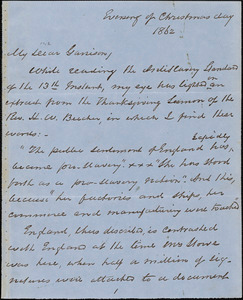 Evening of Christmas day
1862
My dear Garrison,
While reading the Antislavery Standard
of the 13th Instant, my eye has lighted on an
extract from the Thanksgiving Sermon of the
Rev. H. W. Beecher, in which I find these
words:-
rapidly
"The public sentiment of England has
become pro-slavery." x x x "She has stood
forth as a pro-slavery nation". And this,
because "her factories and ships, her
commerce and manufacturing were touched
England, thus described, is contrasted
with England at the time Mrs Stowe
was here, when half a million of sig-
natures were attached to a document
1